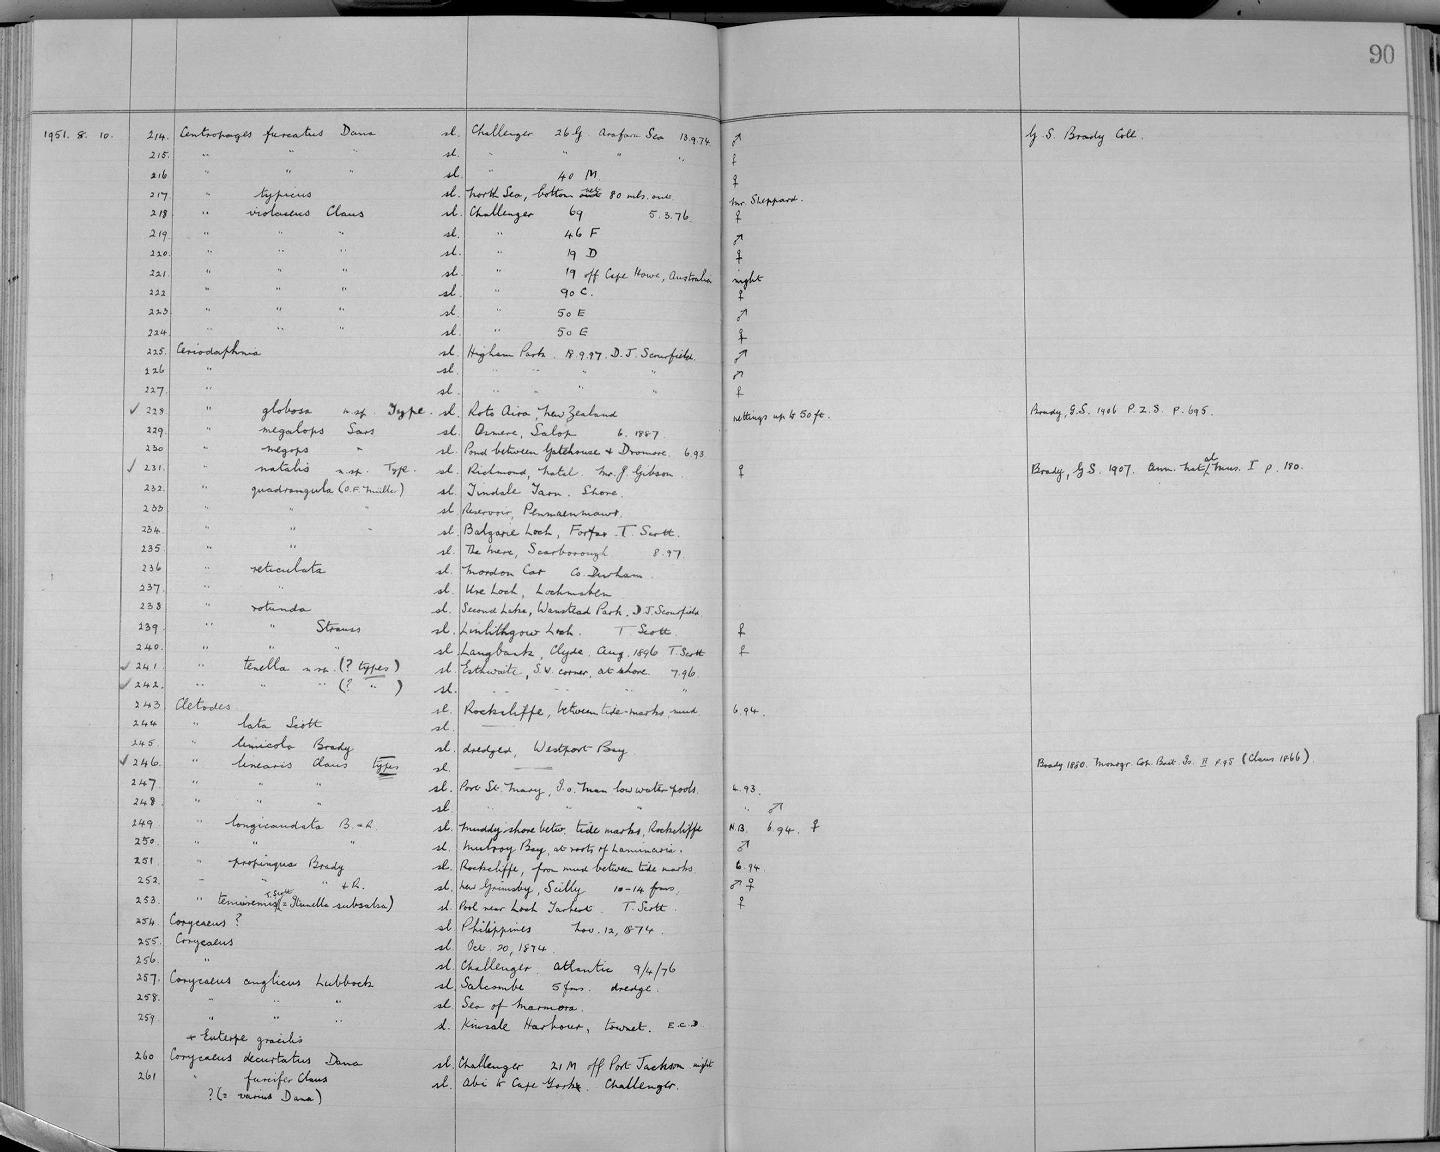 90
1951. 8. 10. 214. Centropages furcatus Dana sl. Challenger 26 G. Arafura Sea 13.9.74. ♂ G. S. Brady Coll.
215. " " " sl. " " " " ♀
216 " " " sl. " 40 M. ♀
217 " typicus sl. North Sea, bottom net 80 mls. out. Mr. Sheppard.
218 " violaceus Claus sl. Challenger 69 5.3.76. ♀
219. " " " sl. " 46 F ♂
220. " " " sl. " 19 D ♀
221. " " " sl. " 19 off Cape Howe, Australia night
222 " " " sl. " 90 C. ♀
223 " " " sl. " 50 E ♂
224. " " " sl. " 50 E ♀
225. Ceriodaphnia sl. Higham Park. 18.9.97. D.J. Scourfield. ♂
226 " sl. " " " " ♂
227. " sl. " " " " ♀
✓ 228. " globosa n.sp. Type. sl. Roto Aira, New Zealand nettings up to 50 ft. Brady, G.S. 1906 P.Z.S. p. 695.
229. " megalops Sars sl. Osmere, Salop 6. 1887.
230 " megops " sl. Pond between Gatehouse & Dromore. 6.93
✓ 231. " natalis n.sp. Type. sl. Richmond, Natal. Mr. J. Gibson. ♀ Brady, G S. 1907. Ann. Natal Mus. I p. 180.
232. " quadrangula (O.F. Müller) sl. Tindale Tarn. Shore.
233 " " " sl. Reservoir, Penmaenmawr.
234. " " " sl. Balgavie Loch, Forfar. T. Scott.
235 " " sl. The Mere, Scarborough 8.97.
236 " reticulata sl. Mordon Car Co. Durham.
237. " " sl. Ure Loch, Lochmaben
238 " rotunda sl. Second Lake, Wanstead Park. D J. Scourfield.
239. " " Strauss sl. Linlithgow Loch. T Scott. ♀
240. " " " sl. Langbank, Clyde. Aug. 1896 T. Scott ♀
✓ 241. " tenella n.sp. (? types) sl. Esthwaite, S.W. corner, at shore. 7.96.
✓ 242. " " " (? " ) sl. " " " " "
243 Cletodes sl. Rockcliffe, between tide-marks, mud 6.94.
244 " lata Scott sl.
245. " limicola Brady sl. dredged, Westport Bay
✓ 246. " linearis Claus types sl. Brady 1880. Monogr. Cop. Brit. Is. II p. 95 (Claus 1866).
247 " " " sl. Port St. Mary, I. o. Man low water pools. 6.93.
248 " " " sl. " " " " ♂
249 " longicaudata B. & R. sl. Muddy shore betw. tide marks, Rockcliffe N.B. 6.94. ♀
250. " " " sl. Mulroy Bay, at roots of Laminaria. ♂
251 " propinqua Brady sl. Rockcliffe, from mud between tide marks. 6.94
252. " " " & R. sl. New Grimsby, Scilly 10-14 fms. ♂ ♀
253. " tenuiremis T. Scott (= Itunella subsalsa) sl. Pool near Loch Tarbert. T. Scott. ♀
254. Corycaeus ? sl. Philippines Nov. 12, 1874.
255. Corycaeus sl. Oct. 20, 1874.
256. " sl. Challenger. Atlantic 9/4/76
257. Corycaeus anglicus Lubbock sl. Salcombe 5 fms. dredge.
258. " " " sl. Sea of Marmora.
259. " " " sl. Kinsale Harbour, townet. E.C.D.
+ Euterpe gracilis
260 Corycaeus decurtatus Dana sl. Challenger 21 M off Port Jackson night
261 " furcifer Claus sl. Abi to Cape York. Challenger.
? (= varius Dana)